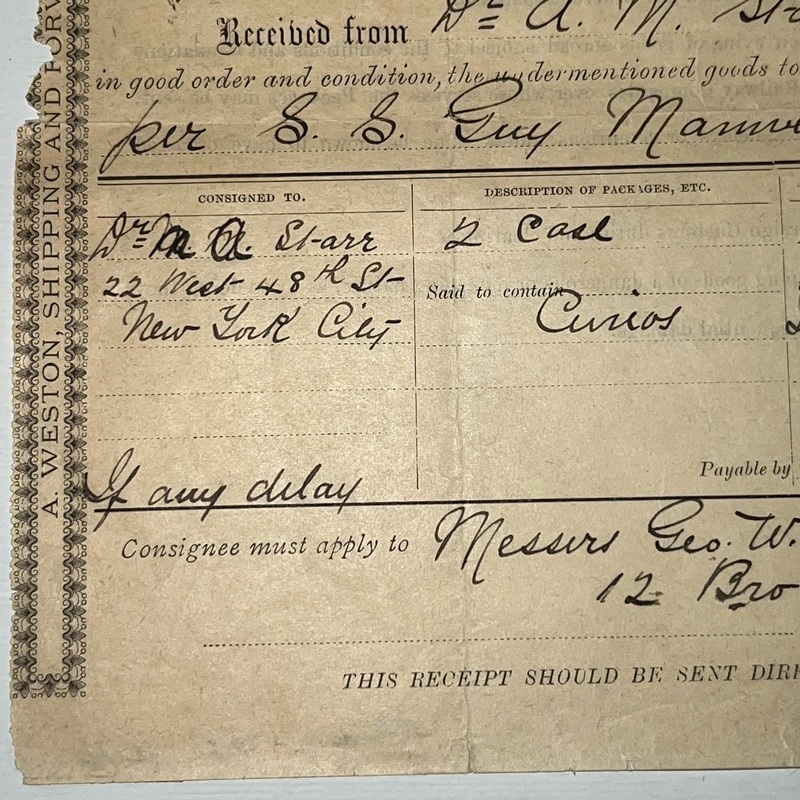 A. WESTON, SHIPPING AND FORW
Received from Dr A. M. St
in good order and condition, the undermentioned goods to
per S. S. Guy Manne
CONSIGNED TO.
DESCRIPTION OF PACKAGES, ETC.
Dr M A. Starr
22 West 48th St
New York City
2 Case
Said to contain
Curios
Payable by
If any delay
Consignee must apply to Messrs Geo. W.
12 Bro
THIS RECEIPT SHOULD BE SENT DIR